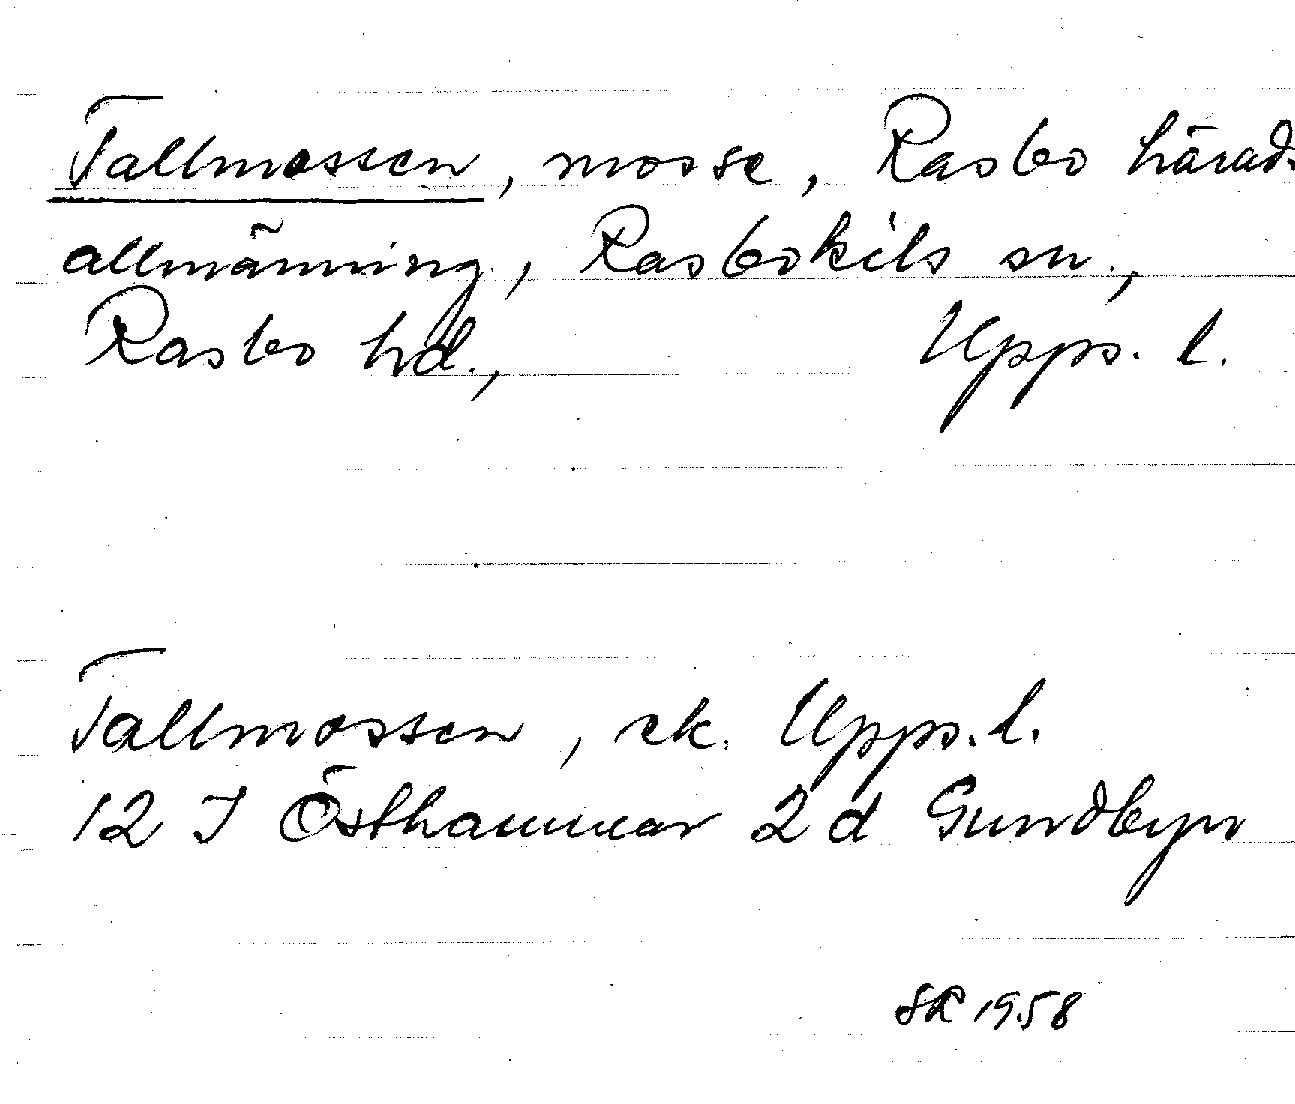 Tallmossen, mosse, Rasbo härads
allmänning, Rasbokils sn.,
Rasbo hd., Upps. l.
Tallmossen, ek. Upps. l.
12 I Östhammar 2 d Gundbyn
SR 1958